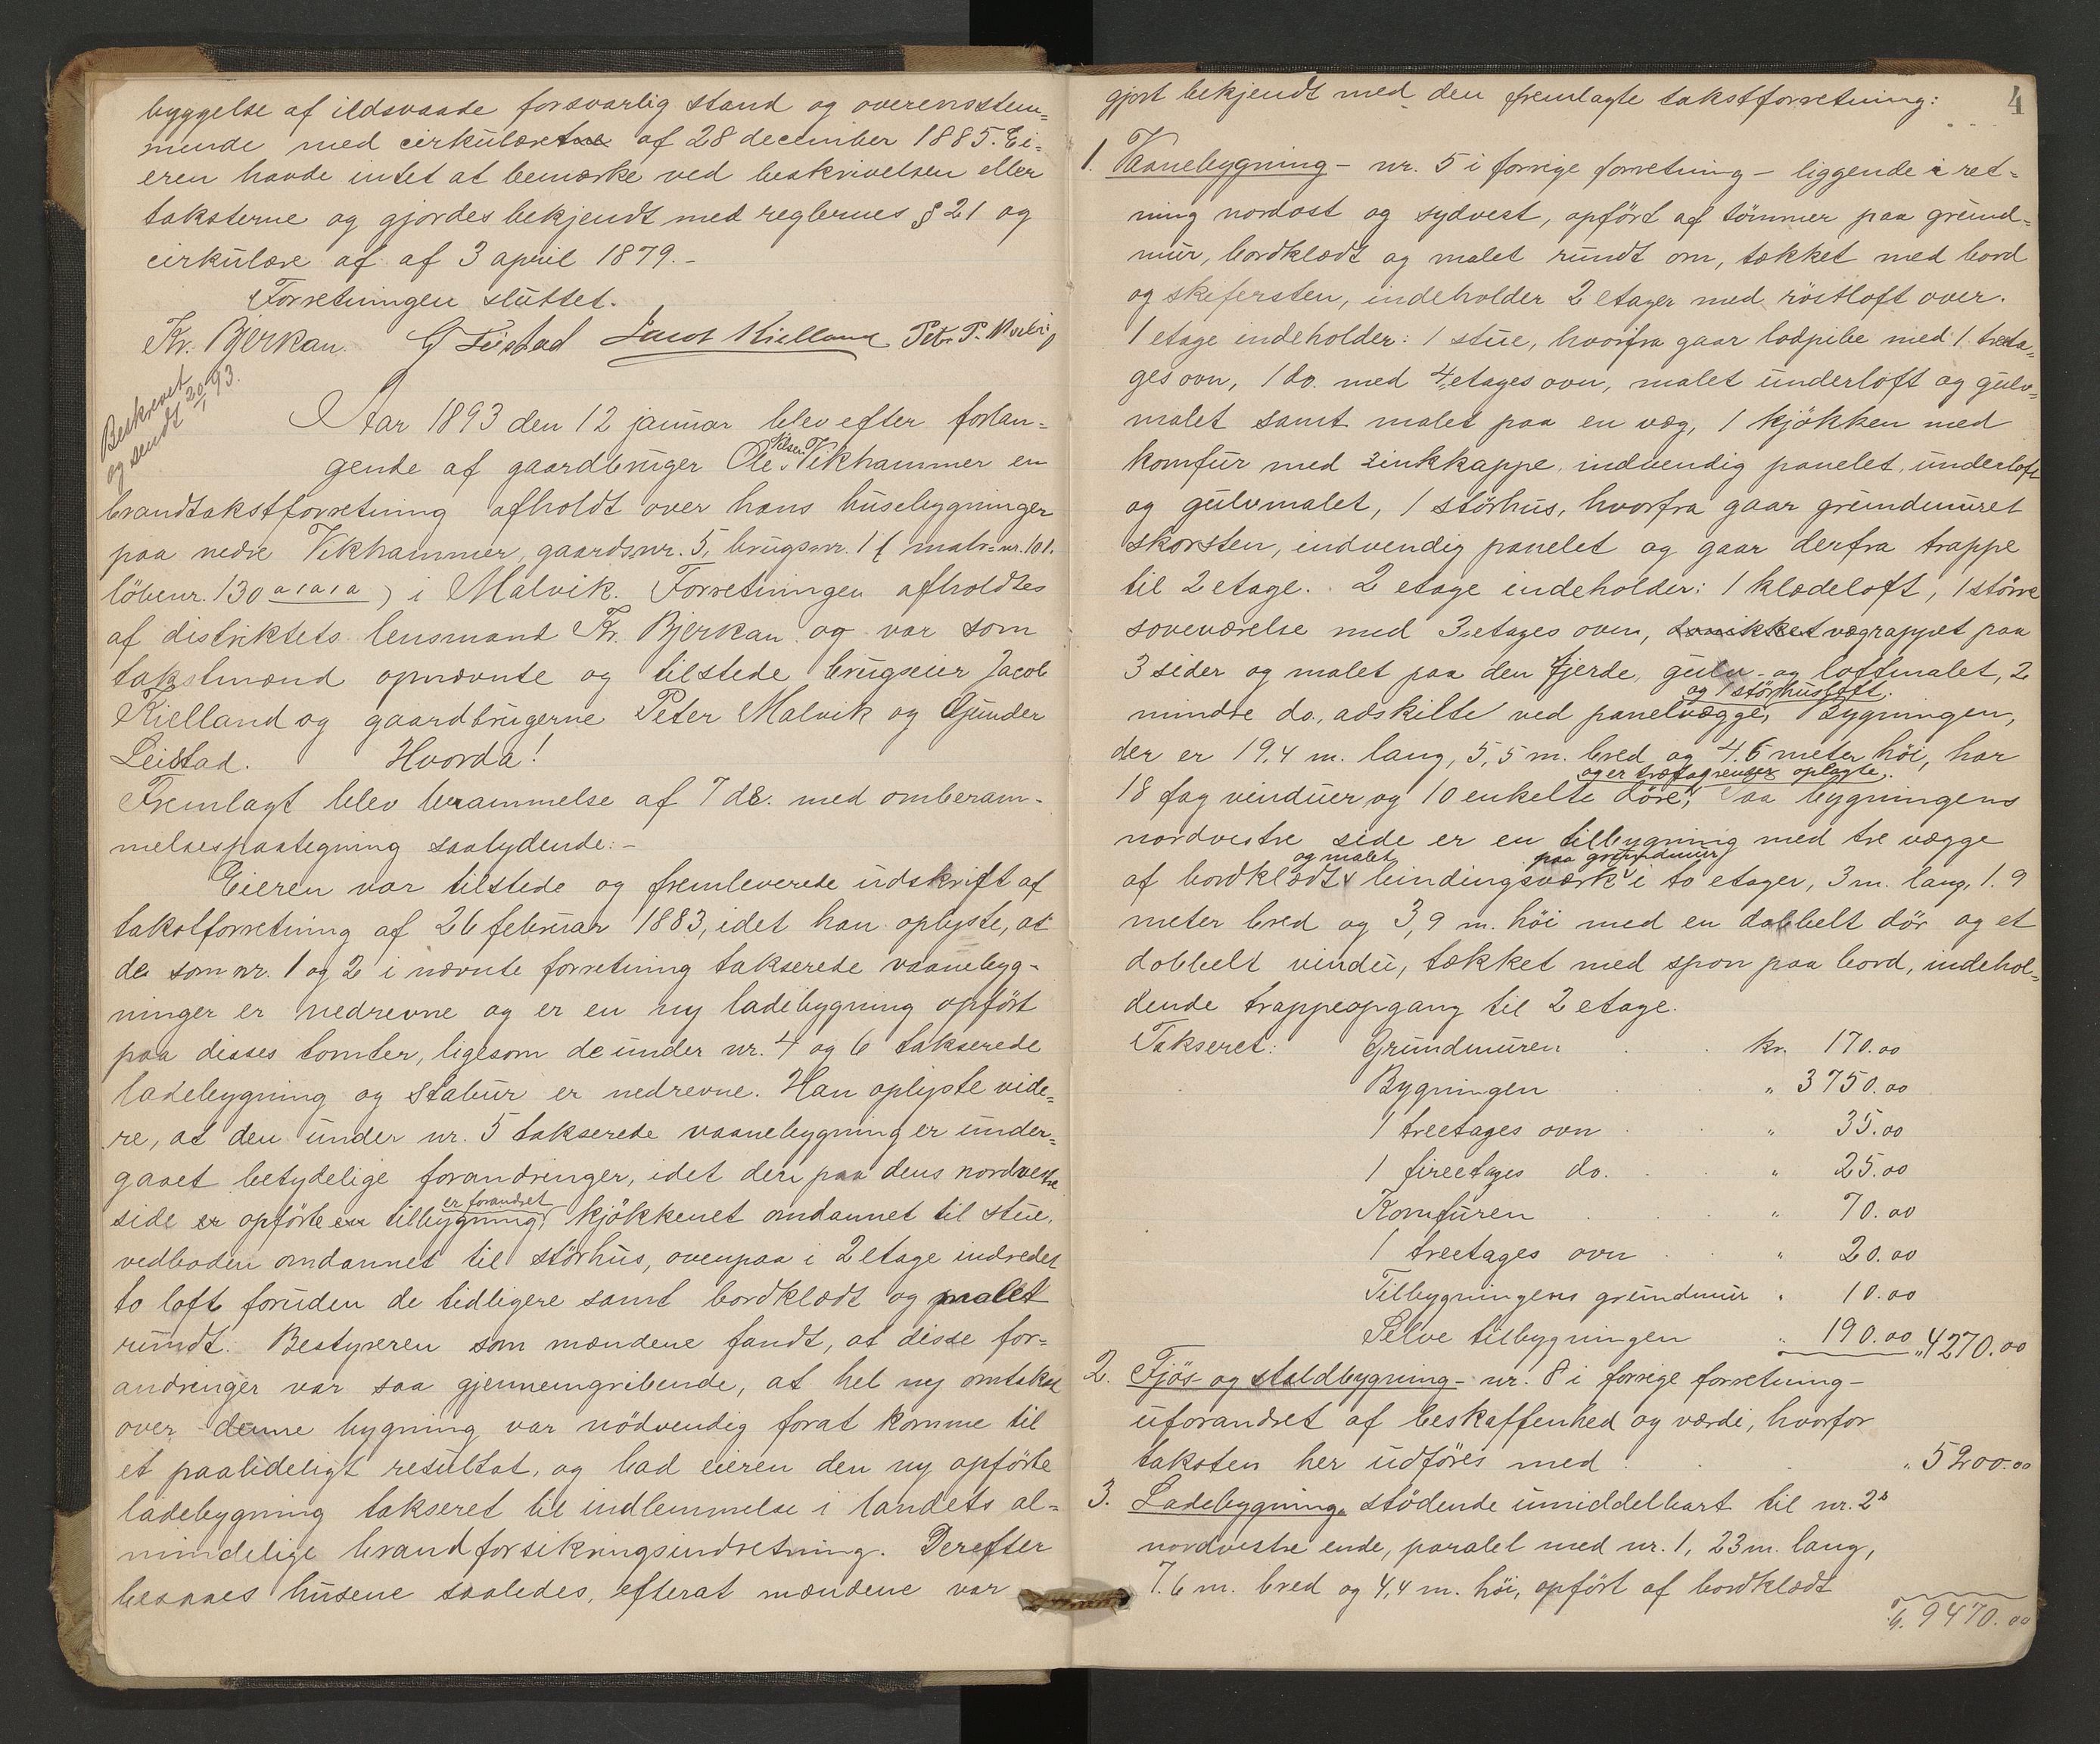 byggelse af ildsvaade forsvarlig stand og overensstem-
mende med cirkulæretne af 28 december 1885. Ei-
eren havde intet at bemærke ved beskrivelsen eller
taksterne og gjordes bekjendt med reglernes § 21 og
cirkulære af af 3 april 1879.-
Forretningen sluttet.
Kr. Bjerkan. G Leistad Jacob Kielland Peter P. Malvig
Beskrevet
og sendt 20/1 93.
Aar 1893 den 12 januar blev efter forlan-
gende af gaardbruger Ole Nilsen Vikhammer en
brandtakstforretning afholdt over hans husebygninger
paa nedre Vikhammer, gaards-nr. 5, brugs-nr. 1 (matr-nr. 101.
löbenr. 130 a 1 a 1 a) i Malvik. Forretningen afholdtes
af distriktets lensmand Kr. Bjerkan og var som
takstmænd opnævnte og tilstede brugseier Jacob
Kielland og gaardbrugerne Peter Malvik og Gunder
Leistad. Hvorda!
Fremlagt blev berammelse af 7 ds. med omberam-
melsespaategning saalydende:-
Eieren var tilstede og fremleverede udskrift af
takstforretning af 26 februar 1883, idet han oplyste, at
de som nr. 1 og 2 i nævnte forretning takserede vaanebyg-
ninger er nedrevne og er en ny ladebygning opfört
paa disses tomter, ligesom de under nr. 4 og 6 takserede
ladebygning og stabur er nedrevne. Han oplyste vide-
re, at den under nr. 5 takserede vaanebygning er under-
gaaet betydelige forandringer, idet den paa dens nordvestre
er forandret
side er opförte en tilbygning, kjökkenet omdannet til stue,
vedboden omdannet til störhus, ovenpaa i 2 etage indredet
to loft foruden de tidligere samt bordklædt og malet
rundt. Bestyreren som mændene fandt, at disse for-
andringer var saa gjennemgribende, at hel ny omtakst
over denne bygning var nödvendig forat komme til
et paalideligt resultat, og bad eieren den ny opförte
ladebygning takseret til indlemmelse i landets al-
mindelige brandforsikringsindretning. Derefter
besaaes husene saaledes, efterat mændene var
4
gjort bekjendt med den fremlagte takstforretning:
1. Vaanebygning - nr. 5 i forrige forretning - liggende i ret-
ning nordost og sydvest, opfört af tömmer paa grund-
mur, bordklædt og malet rundt om, tækket med bord
og skifersten, indeholder 2 etager med röstloft over.
1 etage indeholder: 1 stue, hvorfra gaar lodpibe med 1 treeta-
ges ovn, 1 do. med 4 etages ovn, malet underloft og gulv-
malet samt malet paa en væg, 1 kjökken med
komfur med zinkkappe, indvendig panelet, underloft
og gulvmalet, 1 störhus, hvorfra gaar grundmuret
skorsten, indvendig panelet og gaar derfra trappe
til 2 etage. 2 etage indeholder: 1 klædeloft, 1 större
soveværelse med 3 etages ovn, vægrappet paa
3 sider og malet paa den fjerde, gulv- og loftmalet, 2
og 1 störhusloft.
mindre do., adskilte ved panelvægge, Bygningen,
der er 19,4 m. lang, 5,5 m. bred og 4,6 meter höi, har
og er trætagrender oplagte.
18 fag vinduer og 10 enkelte döre, Paa bygningens
nordvestre side er en tilbygning med tre vægge
og malet paa grundmur
af bordklædt bindingsværk i to etager, 3 m. lang, 1.9
meter bred og 3,9 m. höi med en dobbelt dör og et
dobbelt vindu, tækket med spon paa bord, indehol-
dende trappeopgang til 2 etage.
Takseret: Grundmuren kr. 170.00
Bygningen " 3750.00
1 treetages ovn " 35.00
1 fireetages do. " 25.00
Komfuren " 70.00
1 treetages ovn " 20.00
Tilbygningens grundmur " 10.00
Selve tilbygningen " 190.00 " 4270.00
2. Fjös- og staldbygning - nr. 8 i forrige forretning -
uforandret af beskaffenhed og værdi, hvorfor
taksten her udföres med " 5200.00
3. Ladebygning, stödende umiddelbart til nr. 2s
nordvestre ende, paralel med nr. 1, 23 m. lang,
7.6 m. bred og 4,4 m. höi, opfört af bordklædt
T. 9470.00